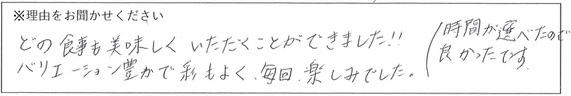 ※理由をお聞かせください
どの食事も美味しくいただくことができました!!
バリエーション豊かで彩もよく、毎回、楽しみでした。
時間が選べたので
良かったです